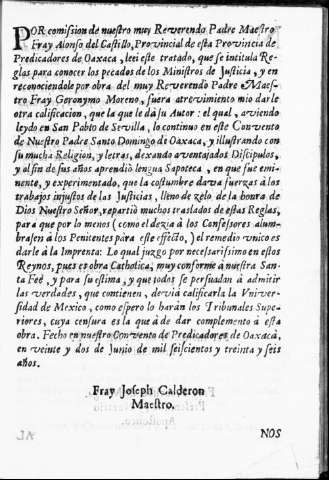 POR comission de nuestro muy Reverendo Padre Maestro
Fray Alonso del Castillo, Provincial de esta Provincia de
Predicadores de Oaxaca, lei este tratado, que se intitula Re-
glas para conocer los pecados de los Ministros de Justicia, y en
reconociendole por obra del muy Reverendo Padre Maes-
tro Fray Geronymo Moreno, fuera atrevimiento mio darle
otra calificacion, que la que le dá su Autor: el qual, aviendo
leydo en San Pablo de Sevilla, lo continuo en este Convento
de Nuestro Padre Santo Domingo de Oaxaca, y illustrando con
su mucha Religion, y letras, dexando aventajados Discipulos,
y al fin de sus años aprendio lengua Sapoteca, en que fue emi-
nente, y experimentado, que la costumbre dava fuerzas á los
trabajos injustos de las Justicias, lleno de zelo de la honra de
Dios Nuestro Señor, repartió muchos traslados de estas Reglas,
para que por lo menos (como el dezia à los Confessores alum-
brasen à los Penitentes para este effecto,) el remedio unico es
darle á la Imprenta: Lo qual juzgo por necessarissimo en estos
Reynos, pues es obra Catholica, muy conforme à nuestra San-
ta Feè, y para su estima, y que todos se persuadan à admitir
las verdades, que contienen, devia calificarla la Vniver-
sidad de Mexico, como espero lo harán los Tribunales Supe-
riores, cuya censura es la que à de dar complemento à esta
obra. Fecho en nuestro Convento de Predicadores de Oaxaca,
en veinte y dos de Junio de mil seiscientos y treinta y seis
años.
Fray Joseph Calderon
Maestro.
NOS